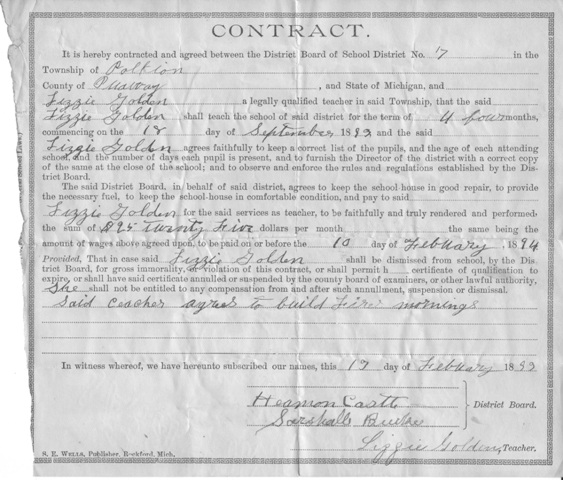 CONTRACT.
It is hereby contracted and agreed between the District Board of School District No. 17 in the
Township of Polkton
County of , and State of Michigan, and
Lizzie Golden a legally qualified teacher in said Township, that the said
Lizzie Golden shall teach the school of said district for the term of 4 four months,
commencing on the 18 day of September 1893 and the said
Lizzie Golden agrees faithfully to keep a correct list of the pupils, and the age of each attending
school, and the number of days each pupil is present, and to furnish the Director of the district with a correct copy
of the same at the close of the school; and to observe and enforce the rules and regulations established by the Dis-
trict Board.
The said District Board, in behalf of said district, agrees to keep the school-house in good repair, to provide
the necessary fuel, to keep the school-house in comfortable condition, and pay to said
Lizzie Golden for the said services as teacher, to be faithfully and truly rendered and performed
the sum of $25 twenty Five dollars per month the same being the
amount of wages above agreed upon, to be paid on or before the 10 day of February 1894
Provided, That in case said Lizzie Golden shall be dismissed from school, by the Dis-
trict Board, for gross immorality, or violation of this contract, or shall permit h certificate of qualification to
expire, or shall have said certificate annulled or suspended by the county board of examiners, or other lawful authority,
She shall not be entitled to any compensation from and after such annullment, suspension or dismissal.
Said teacher agrees to build Fires mornings
In witness whereof, we have hereunto subscribed our names, this 17 day of February 1893
District Board.
Lizzie Golden, Teacher.
S. E. WELLS, Publisher, Rockford, Mich.